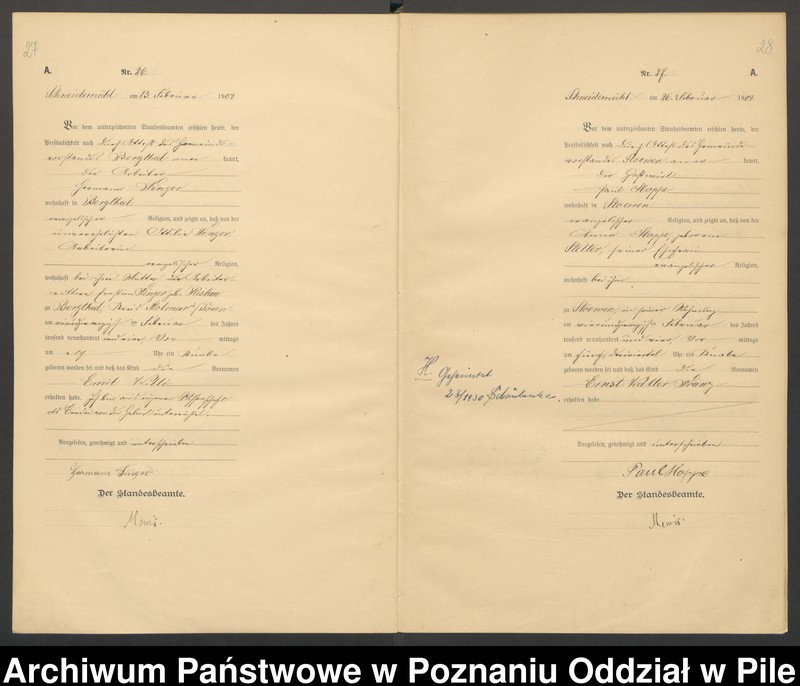 27
A.
Nr. 26.
Schneidemühl am 23. Februar 1904
Vor dem unterzeichneten Standesbeamten erschien heute, der
Persönlichkeit nach durch Attest des Gemeinde-
vorstandes Bergthal aner kannt,
der Arbeiter
Hermann
wohnhaft in Bergthal
evangelischer Religion, und zeigte an, daß von der
unverehelichten Ottilie
Arbeiterin
evangelischer Religion,
wohnhaft bei ihrer Mutter
zu Bergthal, Kreis Kolmar i/Posen
am Februar des Jahres
tausend neunhundert und vier, Vor mittags
um elf Uhr ein Knabe
geboren worden sei und daß das Kind die Vornamen
Emil
erhalten habe.
Vorgelesen, genehmigt und unterschrieben
Hermann
Der Standesbeamte.
28
Nr. 27.
A.
Schneidemühl am 26. Februar 1904
Vor dem unterzeichneten Standesbeamten erschien heute, der
Persönlichkeit nach durch Attest des Gemeinde-
vorstandes Stoewen aner kannt,
der Gastwirt
Paul Hoppe
wohnhaft in Stoewen
evangelischer Religion, und zeigte an, daß von der
Anna Hoppe, geborene
Stelter, seiner Ehefrau
evangelischer Religion,
wohnhaft bei ihm
zu Stoewen, in seiner Wohnung
am vierundzwanzigsten Februar des Jahres
tausend neunhundert und vier, Vor mittags
um fünf dreiviertel Uhr ein Knabe
geboren worden sei und daß das Kind die Vornamen
Ernst Walter Franz
erhalten habe.
Vorgelesen, genehmigt und unterschrieben
Paul Hoppe
Der Standesbeamte.
H. Geheiratet
23/1930 Schönlanke.
Archiwum Państwowe w Poznaniu Oddział w Pile